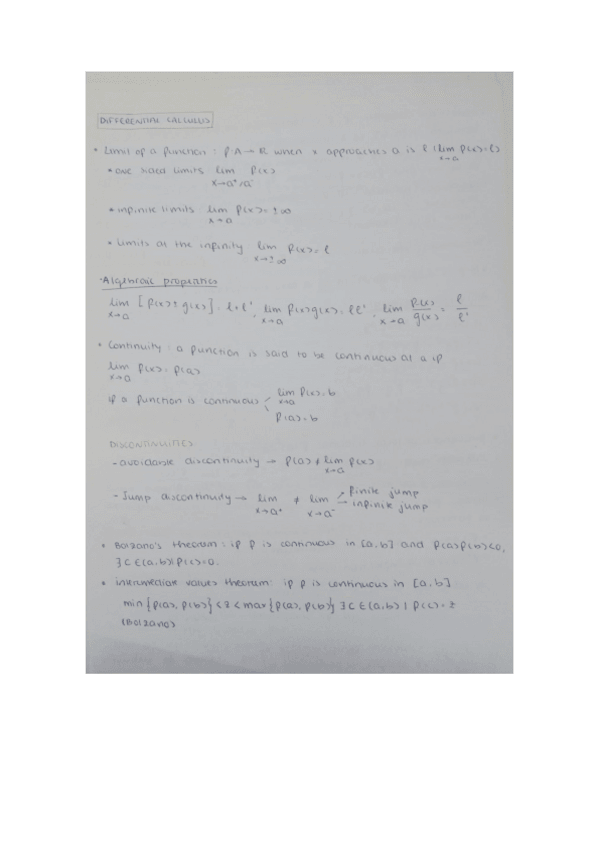 DIFFERENTIAL CALCULUS
• Limit of a function : f A→R when x approaches a is l (lim f(x)=l)
x→a
• one sided limits lim f(x)
x→a⁺/a⁻
• infinite limits lim f(x)=±∞
x→a
• Limits at the infinity lim f(x)=l
x→±∞
·Algebraic properties
lim [f(x)±g(x)]=l+l', lim f(x)g(x)=ll', lim f(x)/g(x)=l/l'
x→a x→a x→a
• Continuity : a function is said to be continuous at a if
lim f(x)=f(a)
x→a
if a function is continuous lim f(x)=b
x→a
f(a)=b
DISCONTINUITIES
-avoidable discontinuity → f(a)≠lim f(x)
x→a
-Jump discontinuity → lim ≠ lim ↗ finite jump
x→a⁺ x→a⁻ → infinite jump
• Bolzano's theorem : if f is continuous in [a,b] and f(a)f(b)<0,
∃c∈(a,b)|f(c)=0.
• intermediate values theorem: if f is continuous in [a,b]
min{f(a), f(b)}<z<max{f(a), f(b)} ∃c∈(a,b) | f(c)=z
(Bolzano)